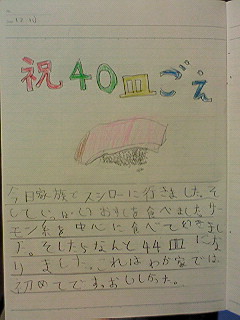 祝40皿ごえ
今日家族でスシローに行きました。そ
して、いっぱいおすしを食べましたサー
モン系を中心に食べて行きまし
た。そしたらなんと44皿にな
りました。これはわが家では
初めてです。おいしかった。